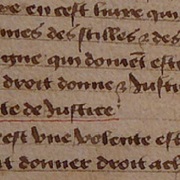 re en cest liure qui
mes des stilles & des
igne qui doiuent estr
droit donne & Justi
te de Justice
est vne volente est
it donner droit ach